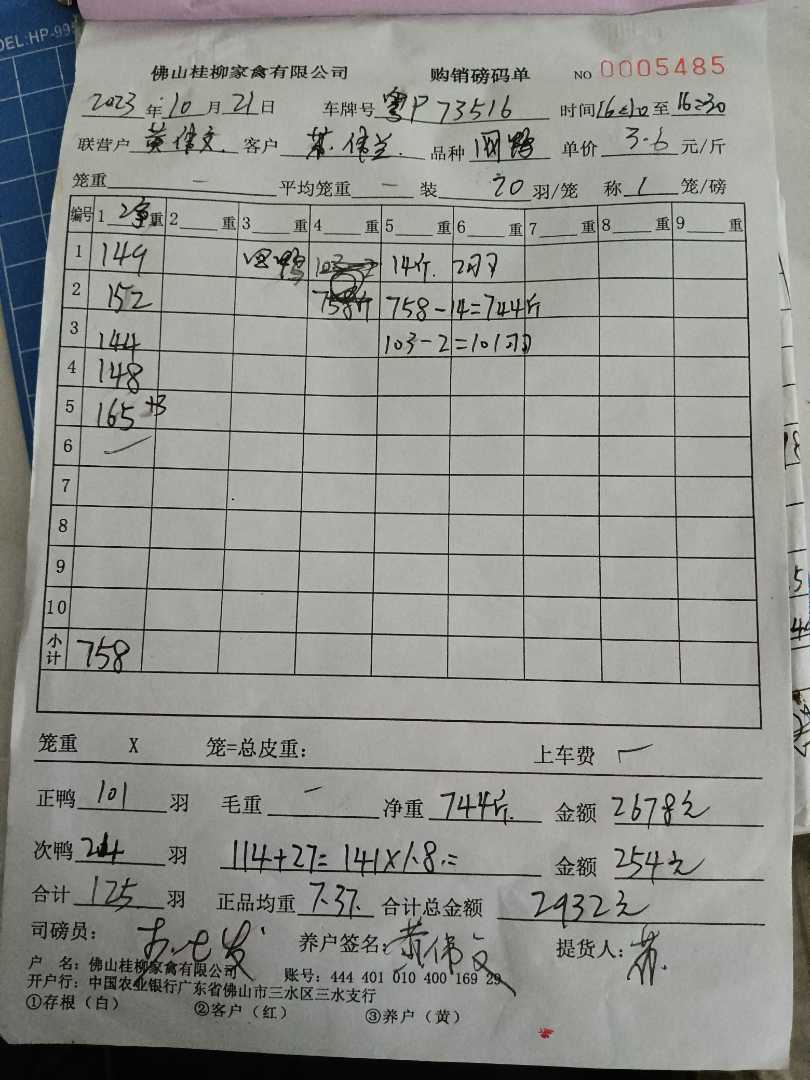 DEL:HP-99
佛山桂柳家禽有限公司 购销磅码单 NO 0005485
2023年10月21日 车牌号 粤P73516 时间16:10至16:30
联营户 黄伟文. 客户 苏.伟兰. 品种 网鸭 单价 3.6 元/斤
笼重 — 平均笼重 — 装 20 羽/笼 称 1 笼/磅
编号 1 净重 2 重 3 重 4 重 5 重 6 重 7 重 8 重 9 重
1 149 14斤. 2羽
2 152 758斤 758-14=744斤
3 144 103-2=101羽
4 148
5 165+3
6 —
7
8
9
10
小计 758
笼重 X 笼=总皮重: 上车费
正鸭 101 羽 毛重 — 净重 744斤. 金额 2678元
次鸭 24 羽 114+27=141×1.8.= 金额 254元
合计 125 羽 正品均重 7.37. 合计总金额 2932元
司磅员: 养户签名: 黄伟文 提货人: 苏.
户 名: 佛山桂柳家禽有限公司 账号: 444 401 010 400 169 29
开户行: 中国农业银行广东省佛山市三水区三水支行
①存根(白) ②客户(红) ③养户(黄)